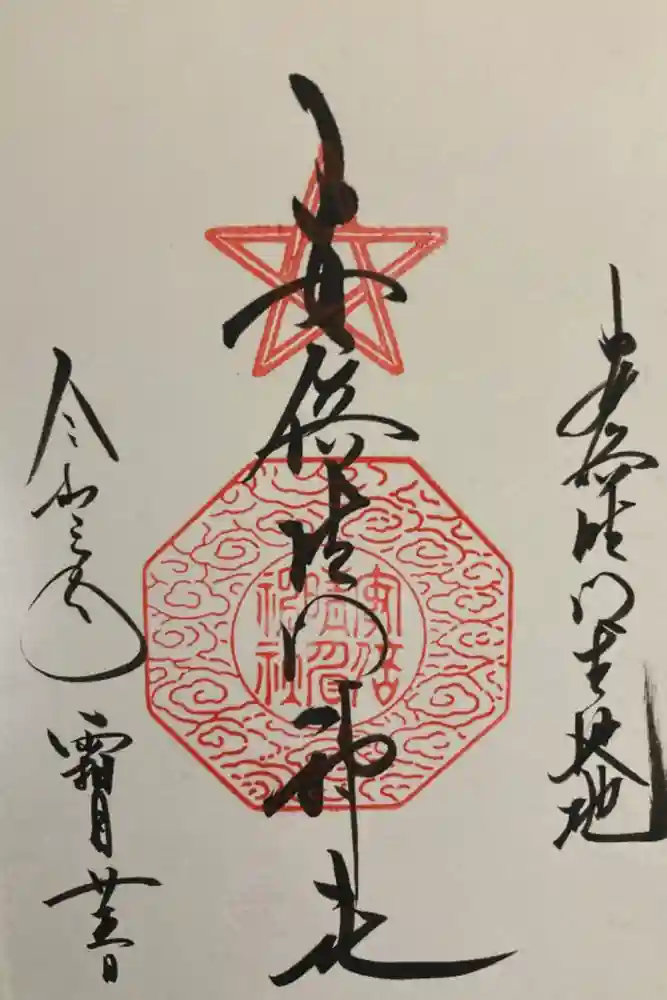 安倍晴明生誕地
安倍晴明神社
安倍
晴明
神社
令和三年
霜月廿五日